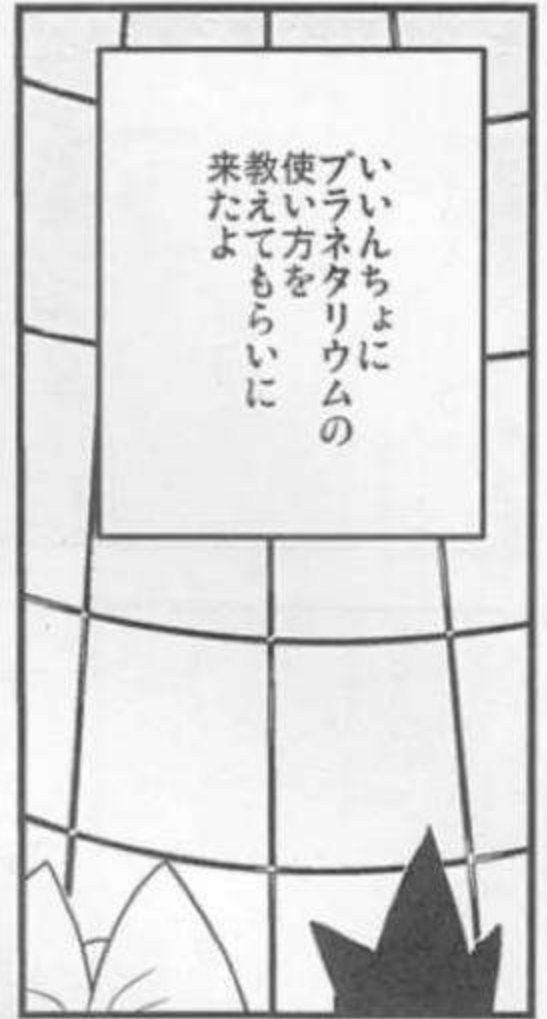 いいんちょに
プラネタリウムの
使い方を
教えてもらいに
来たよ